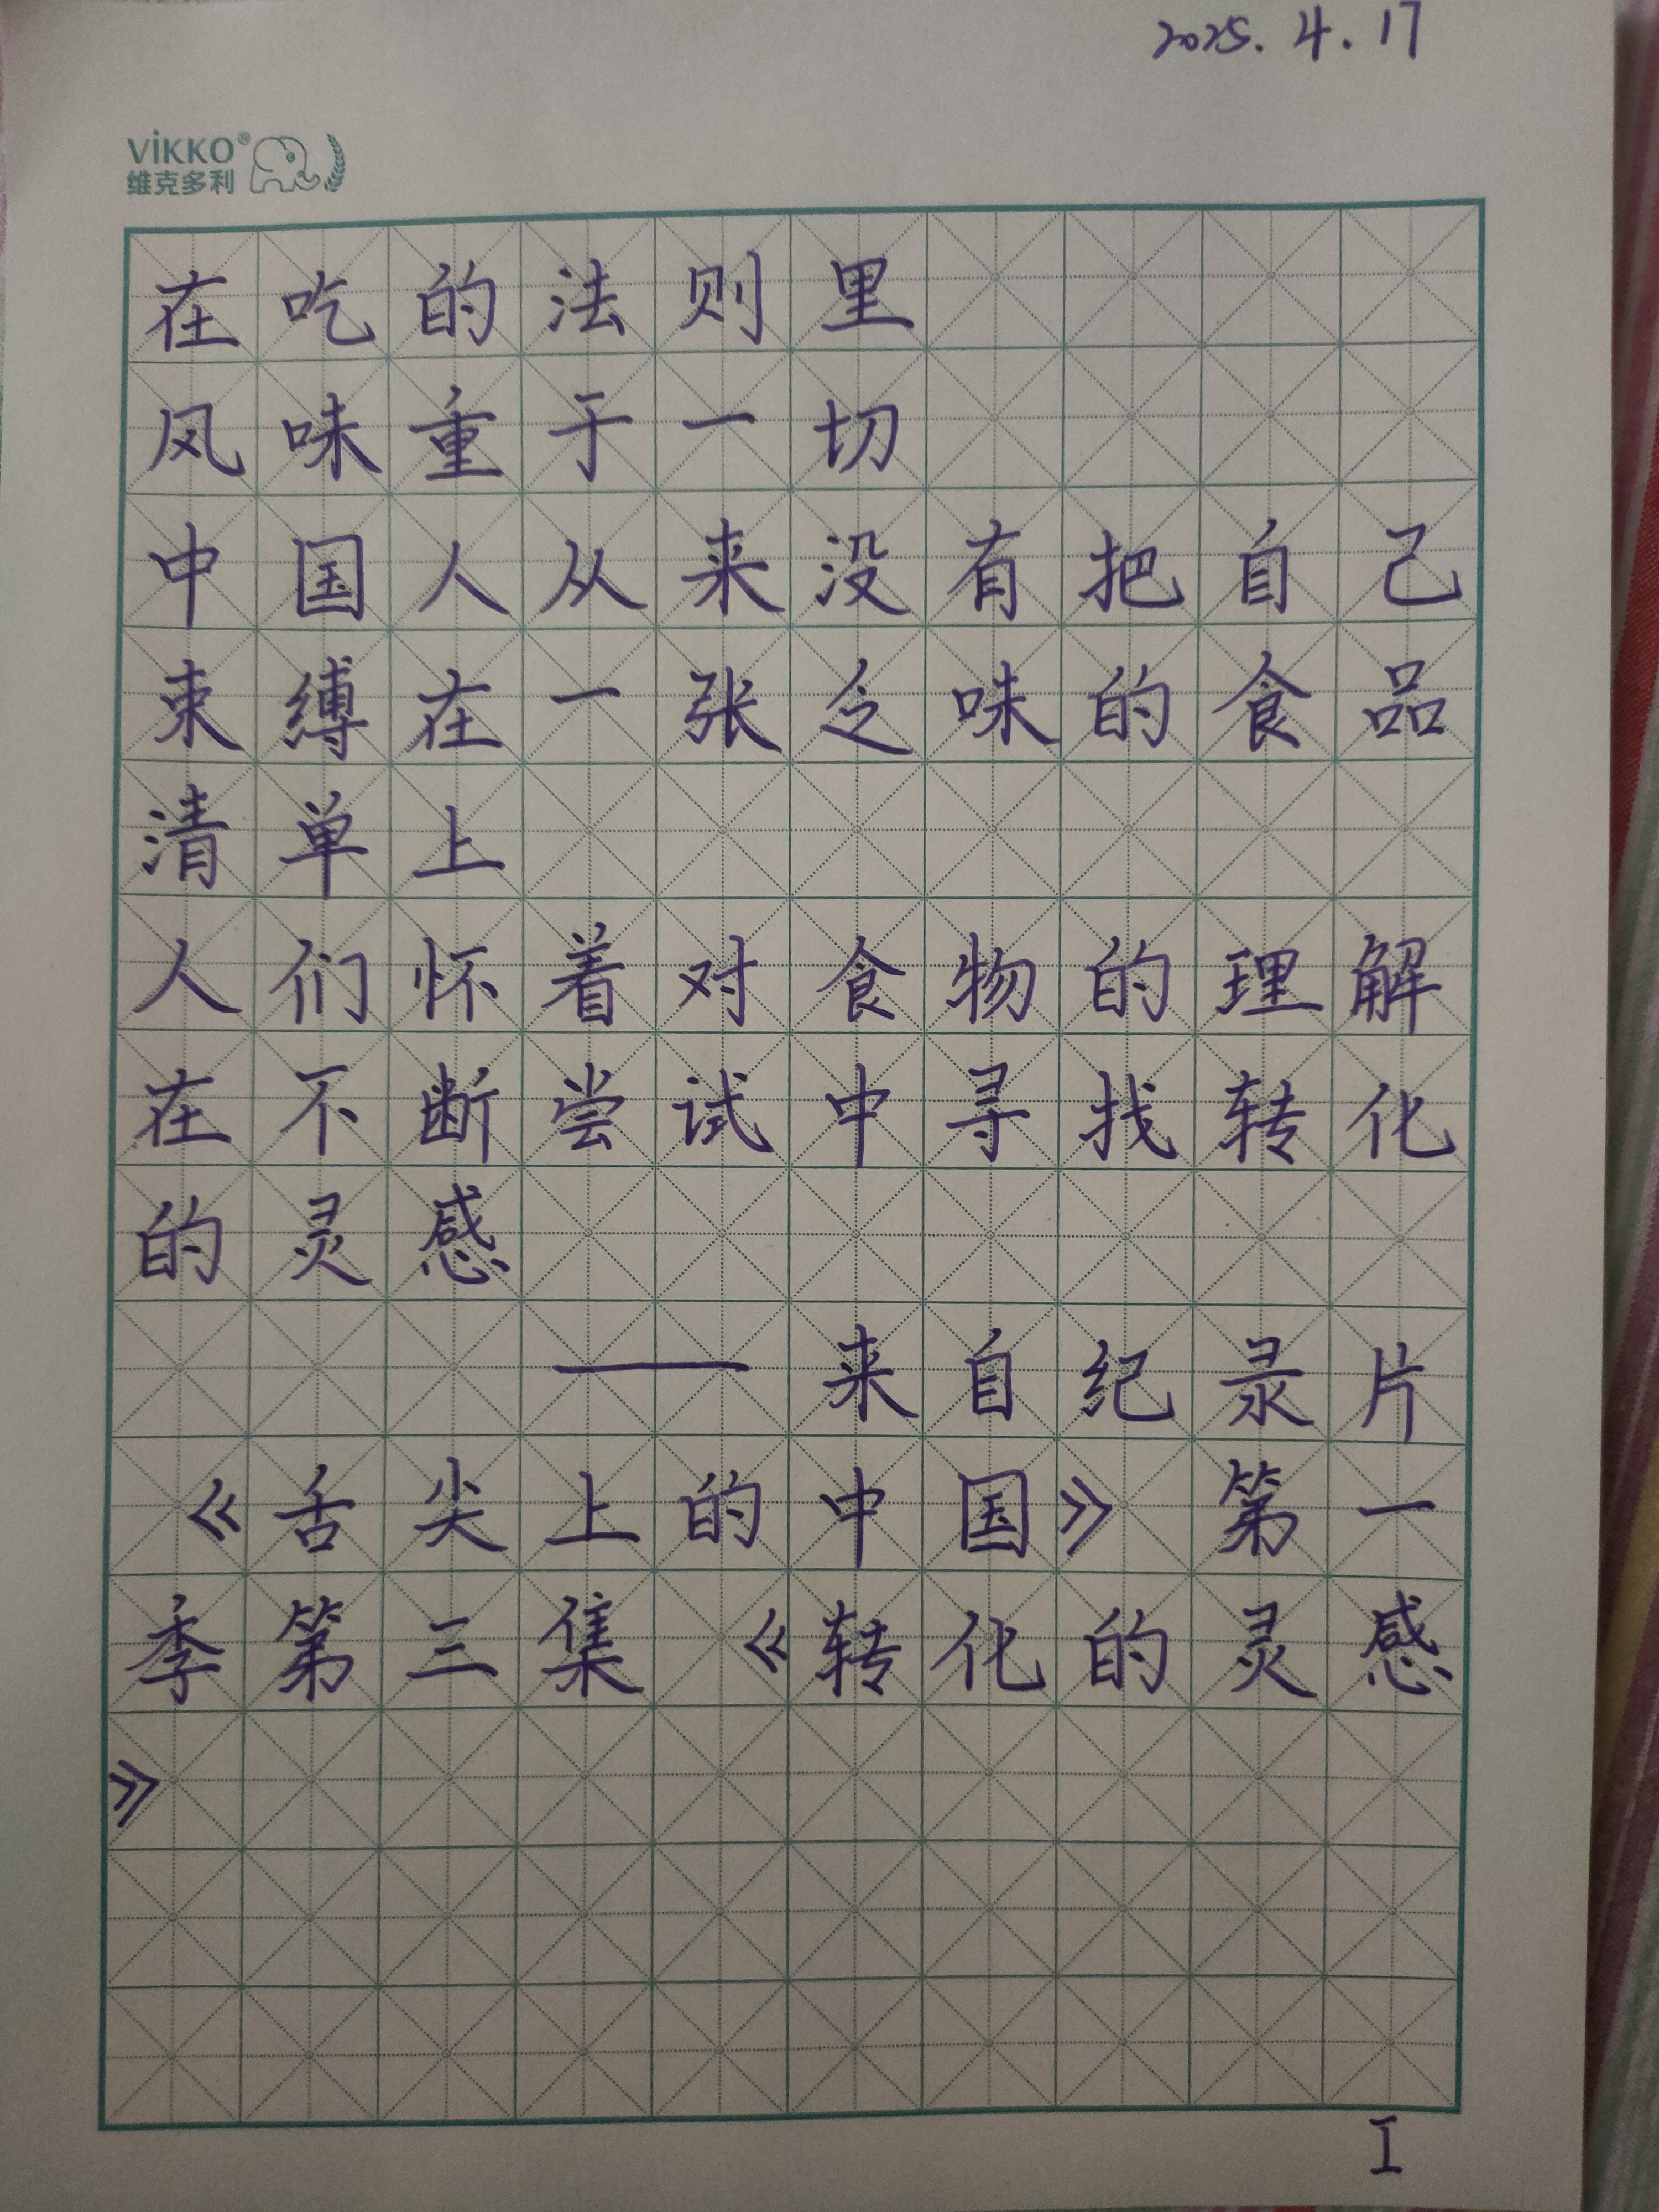 2025.4.17
ViKKO®
维克多利
在吃的法则里
风味重于一切
中国人从来没有把自己
束缚在一张乏味的食品
清单上
人们怀着对食物的理解
在不断尝试中寻找转化
的灵感
——来自纪录片
《舌尖上的中国》第一
季第三集《转化的灵感
》
I